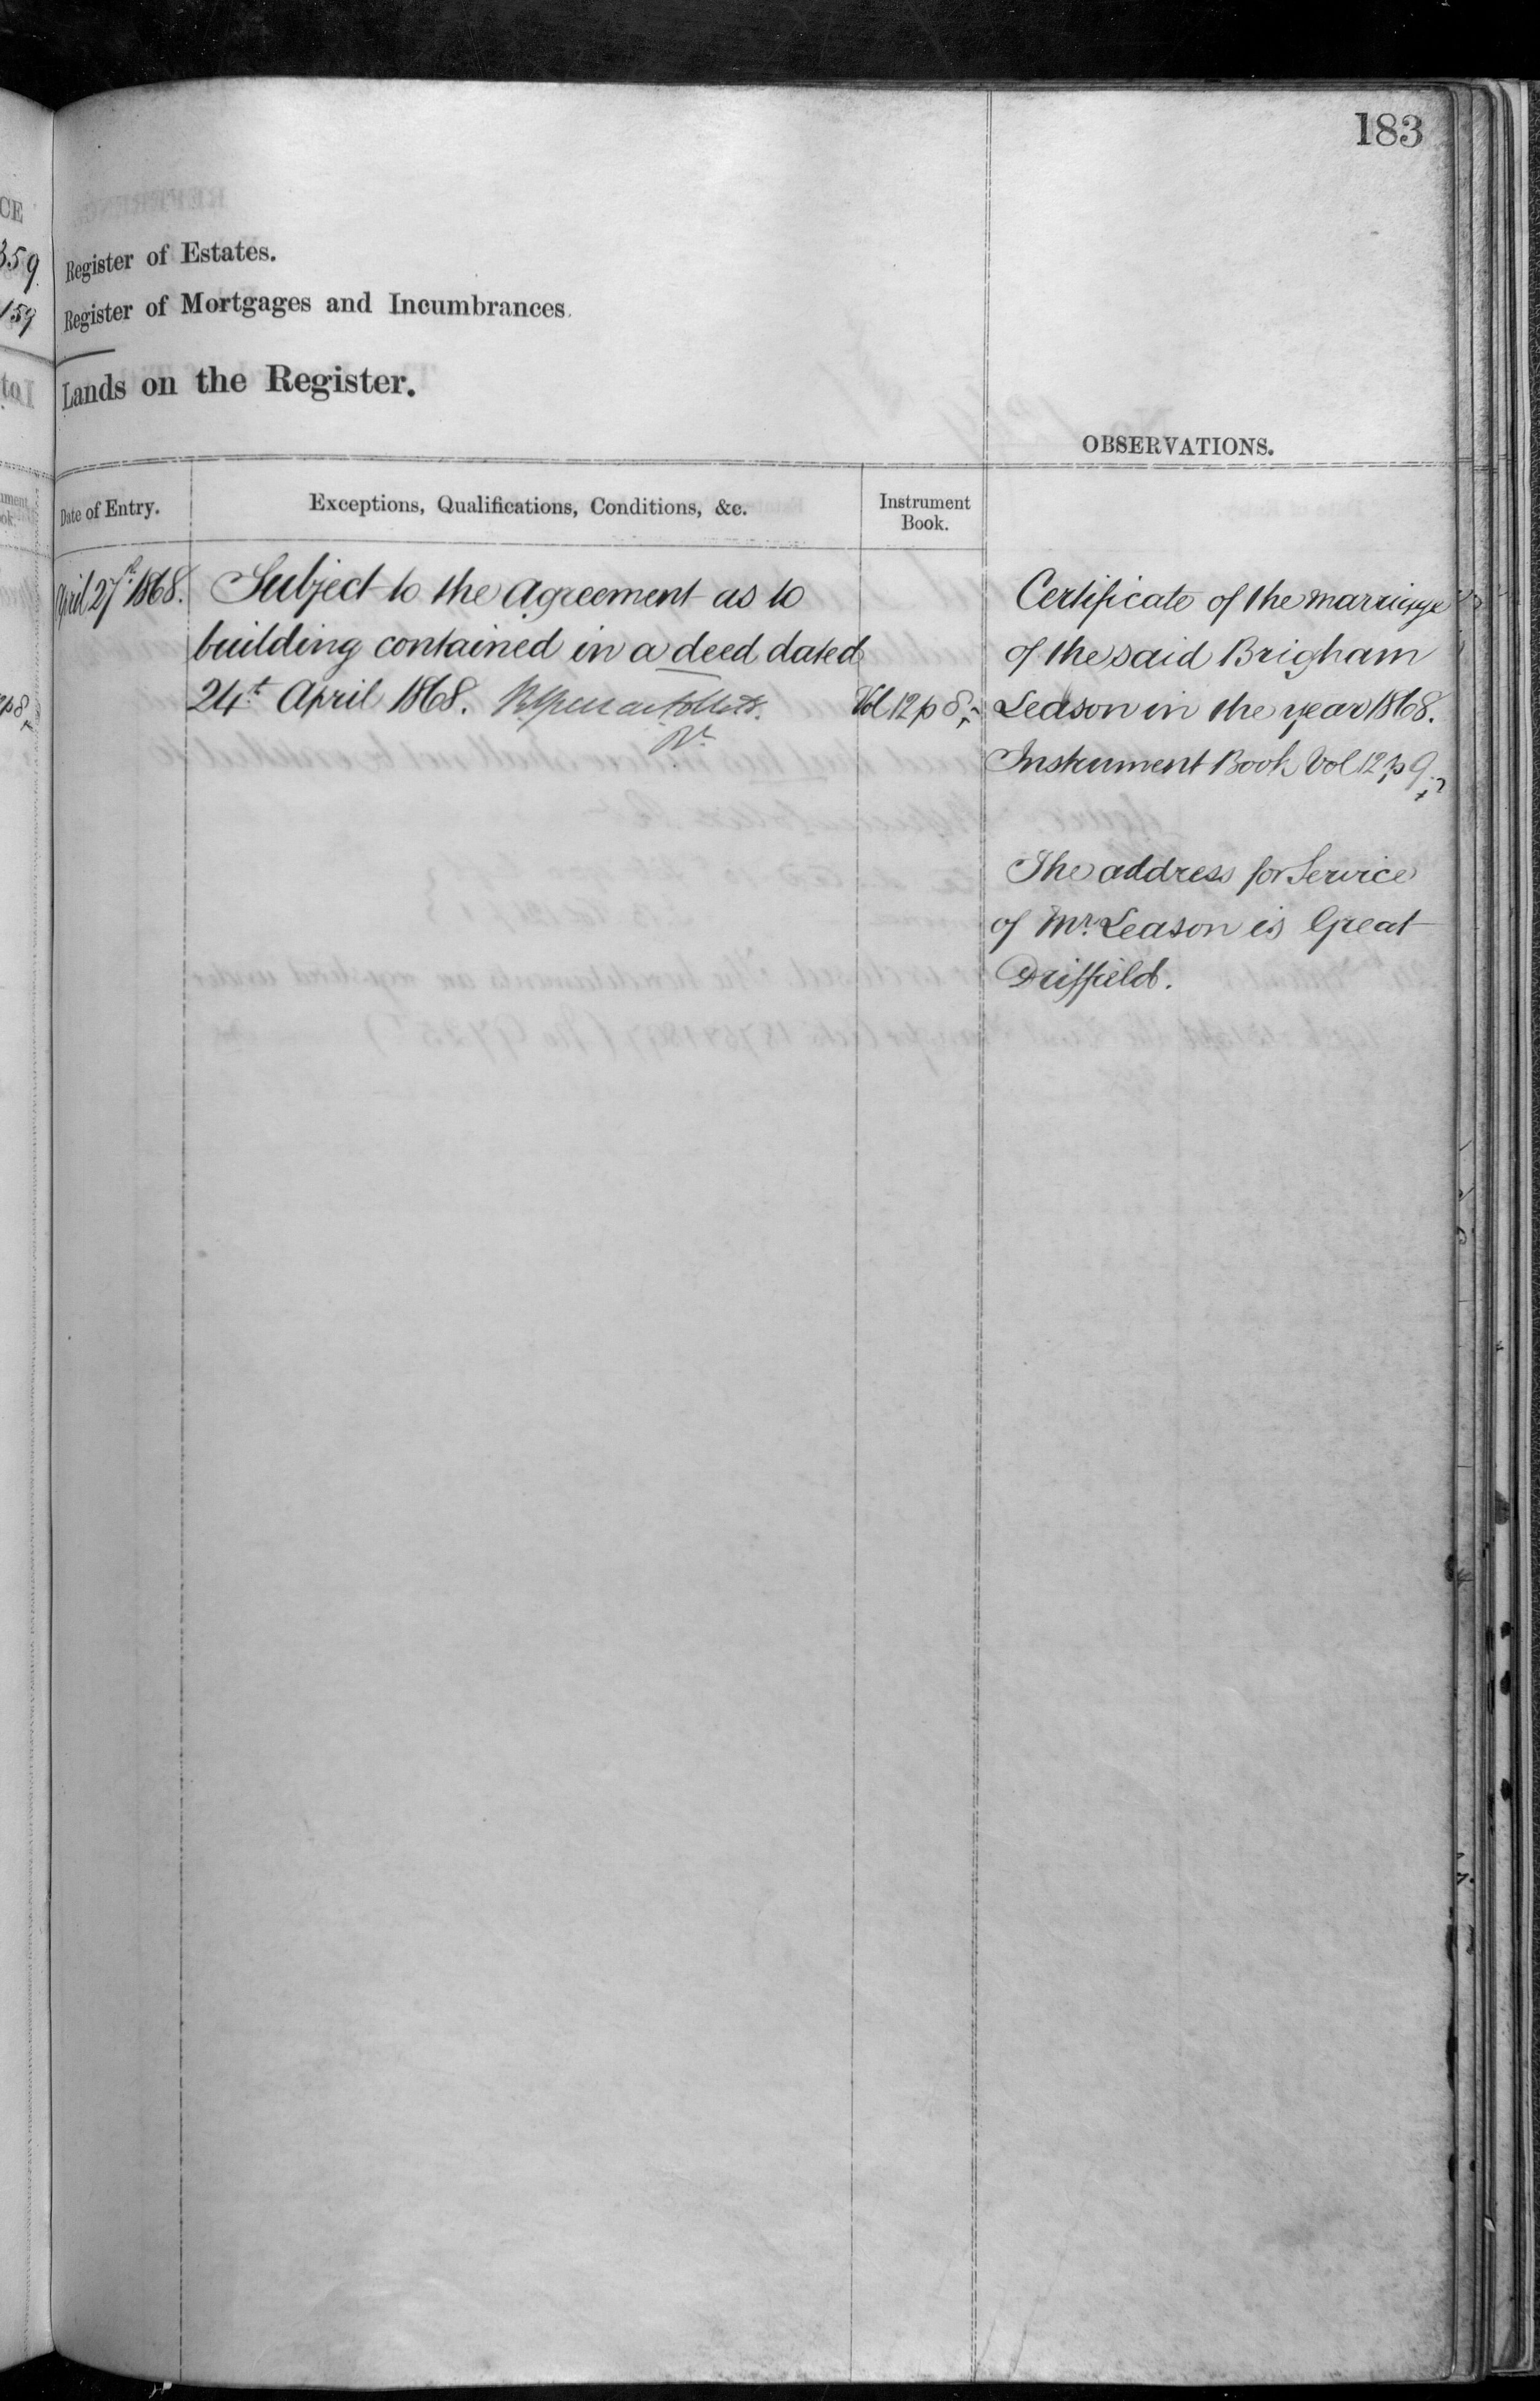 183
CE
359
159
Register of Estates.
Register of Mortgages and Incumbrances.
Lands on the Register.
OBSERVATIONS.
Date of Entry.
Exceptions, Qualifications, Conditions, &c.
Instrument
Book.
April 27th 1868.
Subject to the Agreement as to
building contained in a deed dated
24t. April 1868.
Vol 12 p 8
Certificate of the marriage
of the said Brigham
Leason in the year 1868.
Instrument Book Vol 12 p 9
The address for Service
of Mr. Leason is Great
Driffield.